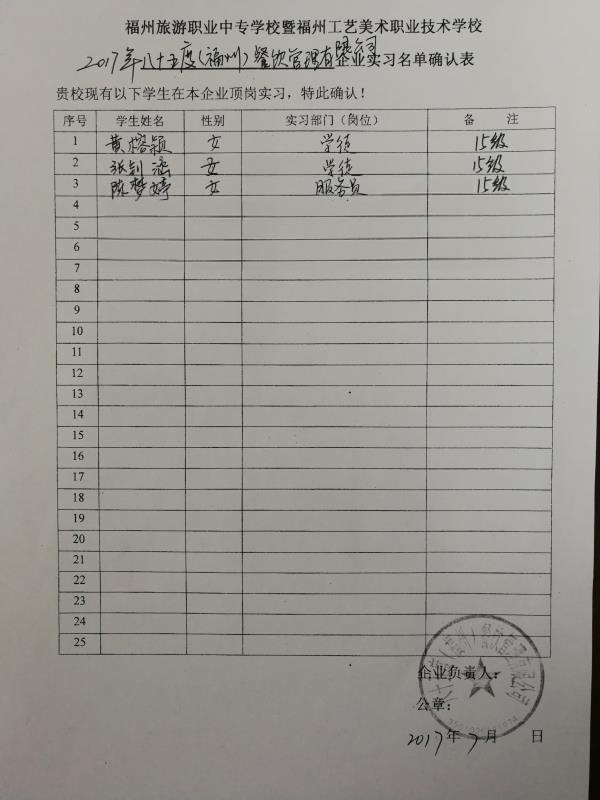 福州旅游职业中专学校暨福州工艺美术职业技术学校
2017年八十五度(福州)餐饮管理有限公司企业实习名单确认表
贵校现有以下学生在本企业顶岗实习，特此确认！
序号 学生姓名 性别 实习部门（岗位） 备 注
1 黄榕颖 女 学徒 15级
2 张钊涵 女 学徒 15级
3 陈梦婷 女 服务员 15级
4
5
6
7
8
9
10
11
12
13
14
15
16
17
18
19
20
21
22
23
24
25
企业负责人：
公章：
2017年7月 日